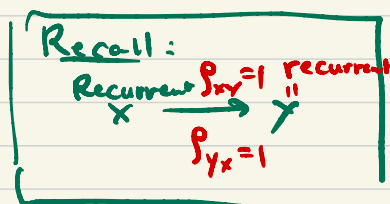 Recall:
Recurrent ρxy=1 recurrent
x → y "
ρyx=1